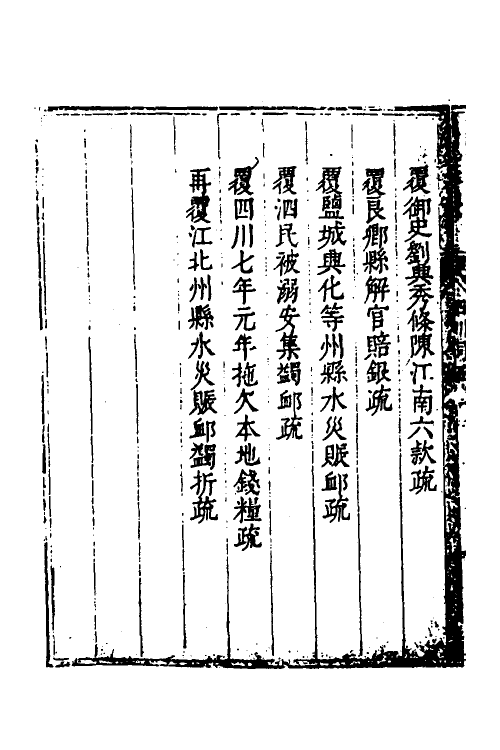 覆御史劉興秀條陳江南六款疏
覆良鄉縣解官賠銀疏
覆鹽城興化等州縣水災賑䘏疏
覆泗民被溺安集蠲䘏疏
覆四川七年元年拖欠本地錢糧疏
再覆江北州縣水災賑䘏蠲折疏